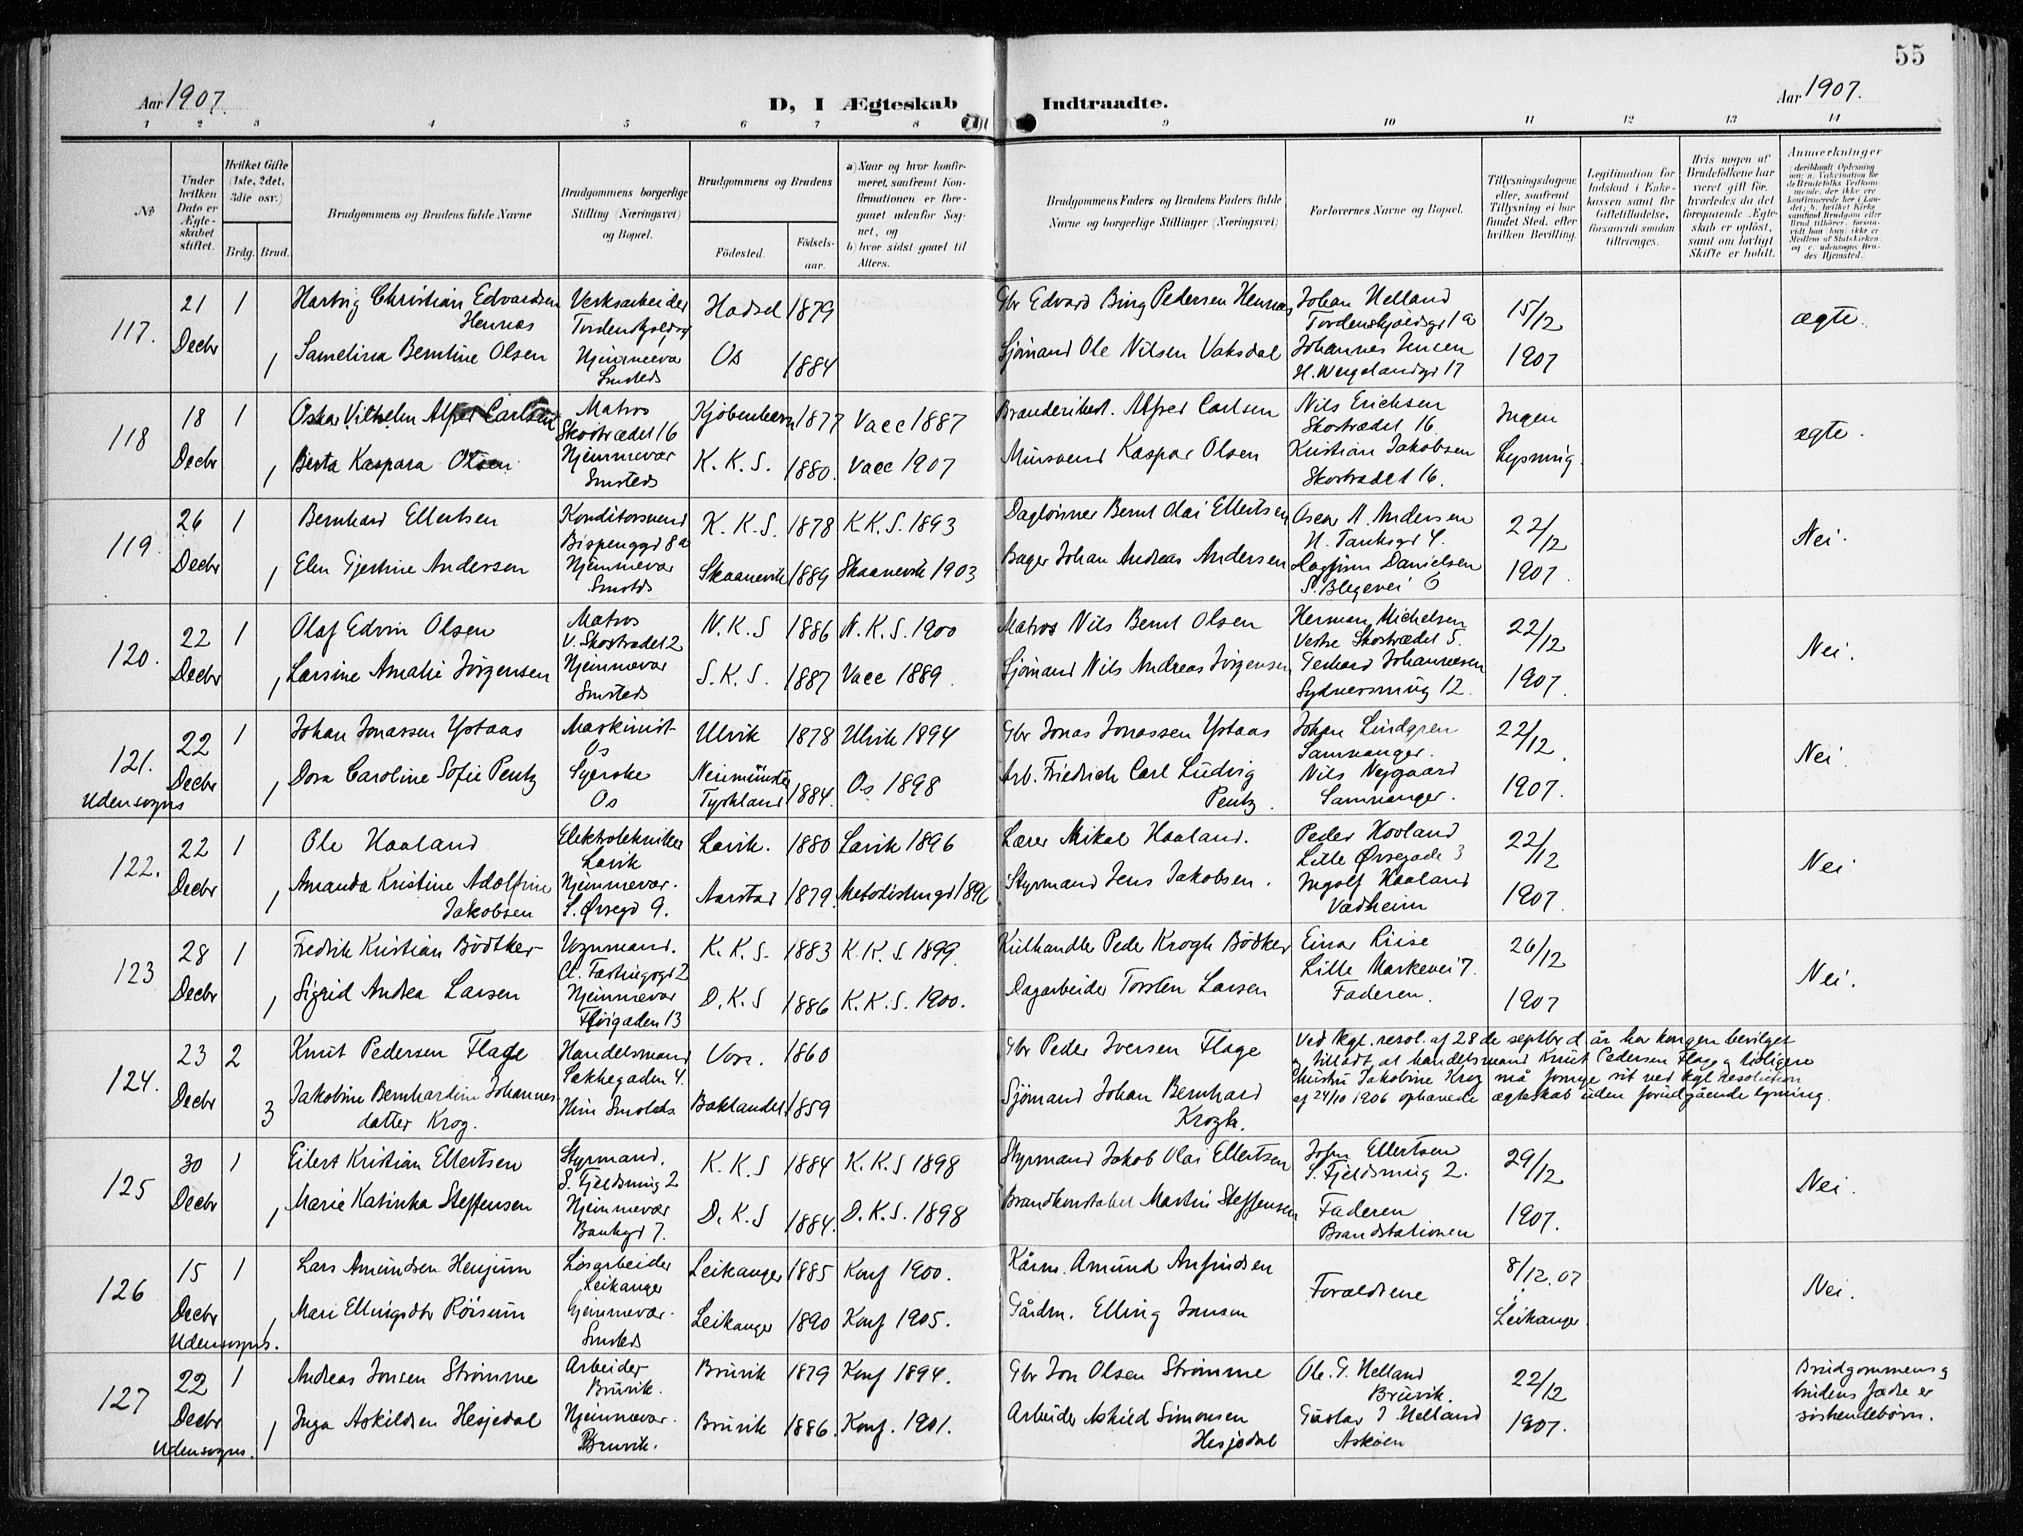 55
Aar 1907.
D, I Ægteskab Indtraadte.
Aar 1907.
1 2 3 4 5 6 7 8 9 10 11 12 13 14
No
Under hvilken Dato er Ægteskabet stiftet.
Hvilket Gifte (1ste, 2det, 3die osv.)
Brdg. Brud.
Brudgommens og Brudens fulde Navne
Brudgommens borgerlige Stilling (Næringsvei) og Bopæl.
Brudgommens og Brudens
Fødested.
Fødselsaar.
a) Naar og hvor konfirmeret, samfremt Konfirmationen er foregaaet udenfor Sognet, og
b) hvor sidst gaaet til Alters.
Brudgommens Faders og Brudens Faders fulde Navne og borgerlige Stillinger (Næringsvei)
Forlovernes Navne og Bopæl.
Tillysningsdagene eller, saafremt Tillysning ei har fundet Sted, efter hvilken Bevilling.
Legitimation for Indskud i Enkekassen samt for Giftetilladelse, forsaavidt saadan tiltrænges.
Hvis nogen af Brudefolkene har været gift før, hvorledes da det foregaaende Ægteskab er opløst, samt om lovligt Skifte er holdt.
Anmerkninger
117. 21 Decbr 1
Hartvig Christian Edvardsen Hennes
Verksarbeider
Hadsel 1879
Gbr Edvard Bing Pedersen Hennes
Johan Helland
Tordenskjoldsgd 1a
15/12
1907
ægte.
1 Samelina Berntine Olsen
Hjemmevær
Smsteds
Os 1884
Sjømand Ole Nilsen Vaksdal
Johannes Jensen
H. Wergelandsgd 17
118 18 Decbr 1
Oskar Vilhelm Alfred Carlsen
Matros
Skostrædet 16
Kjøbenhavn 1877 Vacc 1887
Alfred Carlsen
Nils Erichsen
Skostrædet 16.
Ingen
Lysning.
ægte.
1 Berta Kaspara Olsen
Hjemmevær
Smsteds
K. K. S. 1880. Vacc 1907
Mursvend Kaspar Olsen
Kristian Jakobsen
Skostrædet 16.
119. 26 Decbr 1
Bernhard Ellertsen
Konditorsvend
Bispenggd 8a
K. K. S. 1878 K.K.S. 1893
Dagløinner Bernt Olai Ellertsen
Oscar N. Andersen
H. Tanksgd 4.
22/12
1907.
Nei.
1 Elen Gjertine Andersen
Hjemmevær
Smstds
Skaanevik 1889 Skaanevik 1903
Bager Johan Andreas Andersen
Danielsen
S. Blegevei 6
120. 22 Decbr 1
Olaf Edvin Olsen
Matros
V. Skostrædet 2
N. K. S 1886 N. K. S. 1900
Matros Nils Bernt Olsen
Herman Michelsen
Vestre Skostrædet 5.
22/12
1907.
Nei.
1 Larsine Amalie Jørgensen
Hjemmevær
Smsteds
S. K. S. 1887 Vacc 1889.
Sjømand Nils Andreas Jørgensen
Gerhard Johannesen
Sydnessmug 12.
121. Udensogns
22 Decbr 1
Johan Jonassen Ystaas
Maskinist
Os
Ulvik 1878 Ulvik 1894
Gbr Jonas Jonassen Ystaas
Johan Lindgren
Samnanger.
22/12.
1907.
Nei.
1 Dora Caroline Sofie Pentz
Syerske
Os
Neumünster
Tyskland 1884. Os 1898
Arb. Friedrich Carl Ludvig
Pentz.
Nils Nygaard
Samnanger.
122. 22 Decbr 1
Ole Haaland
Elektrotekniker
Lavik
Lavik. 1880 Lavik 1896
Lærer Mikal Haaland.
Peder Haaland
Lille Øvregade 3
22/12
1907.
Nei
1 Amanda Kristine Adolfine
Jakobsen
Hjemmevær.
L. Øvregd 9.
Aarstad 1879. Metodistmgd 1896
Styrmand Jens Jakobsen.
Ingolf Haaland
Vadheim
123 28 Decbr 1
Fredrik Kristian Bödtker
Vognmand.
K. K. S. 1883 K. K. S. 1899.
Kulhandler Peder Krogh Bödker
Einar Riise
Lille Markevei 7.
26/12
1907
Nei.
1 Sigrid Andrea Larsen
Hjemmevær
Fløigaden 13
D. K. S 1886 K. K. S. 1900.
Dagarbeider Torsten Larsen
Faderen.
124. 23 Decbr 2
Knut Pedersen Flage
Handelsmand
Sækkegaden 4.
Voss. 1860
Gbr Peder Iversen Flage
Ved kgl. resol. af 28de septbr d. år har kongen bevilget
og tilladt, at handelsmand Knut Pedersen Flage og tidligere
hustru Jakobine Krog må fornye sit ved kgl resolution
af 24/10 1906 ophævede ægteskab uden forudgående lysning.
3 Jakobine Bernhardine Johannes
datter Krog.
Hun Smsteds.
Baklandet 1859
Sjømand Johan Bernhard
Krogh.
125 30 Decbr 1
Eilert Kristian Ellertsen
Styrmand.
S. Fjeldsmug 2
K. K. S 1884 K. K. S 1898
Styrmand Jakob Olai Ellertsen
John Ellertsen
S. Fjeldsmug 2.
29/12
1907.
Nei.
1 Marie Katinka Steffensen
Hjemmevær
Bankgd 7.
D. K. S 1884. D. K. S. 1898
Brandkonstabel Martin Steffensen
Faderen
Brandstationen
126 15 Decbr Udensogns. 1
Lars Amundsen Henjum
Løsarbeider
Leikanger
Leikanger 1885 Konf 1900.
Kårm. Amund Anfindsen
Forældrene
8/12.07
Leikanger
Nei.
1 Mari Ellingsdtr Röisum
Hjemmevær.
Smsteds
Leikanger 1890 Konf 1905.
Gårdm. Elling Jonsen
127 22 Decbr Udensogns. 1
Andreas Jonsen Strömme
Arbeider
Bruvik.
Bruvik 1879 Konf 1894.
Gbr Jon Olsen Strömme
Ole. G. Helland
Bruvik.
22/12
1907.
Brudgommens og
brudens fædre er
söskendebörn.
1 Inga Askildsen Hesjedal
Hjemmevær.
Bruvik.
Bruvik 1886. Konf. 1901.
Arbeider Askild Simonsen
Hesjedal
Gustav J Helland
Askøen